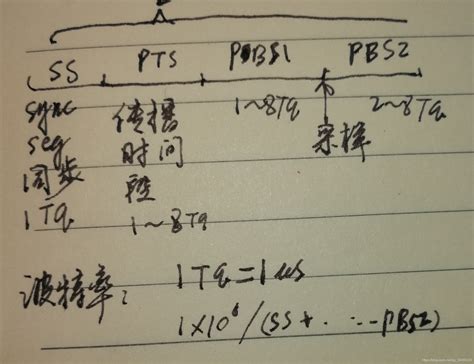 SS PTS PBS1 PBS2
sync 传播 1~8Tq 2~8Tq
seg 时间 采样
同步 段
1Tq 1~8Tq
波特率: 1Tq=1us
1×10⁶/(SS+...PBS2)